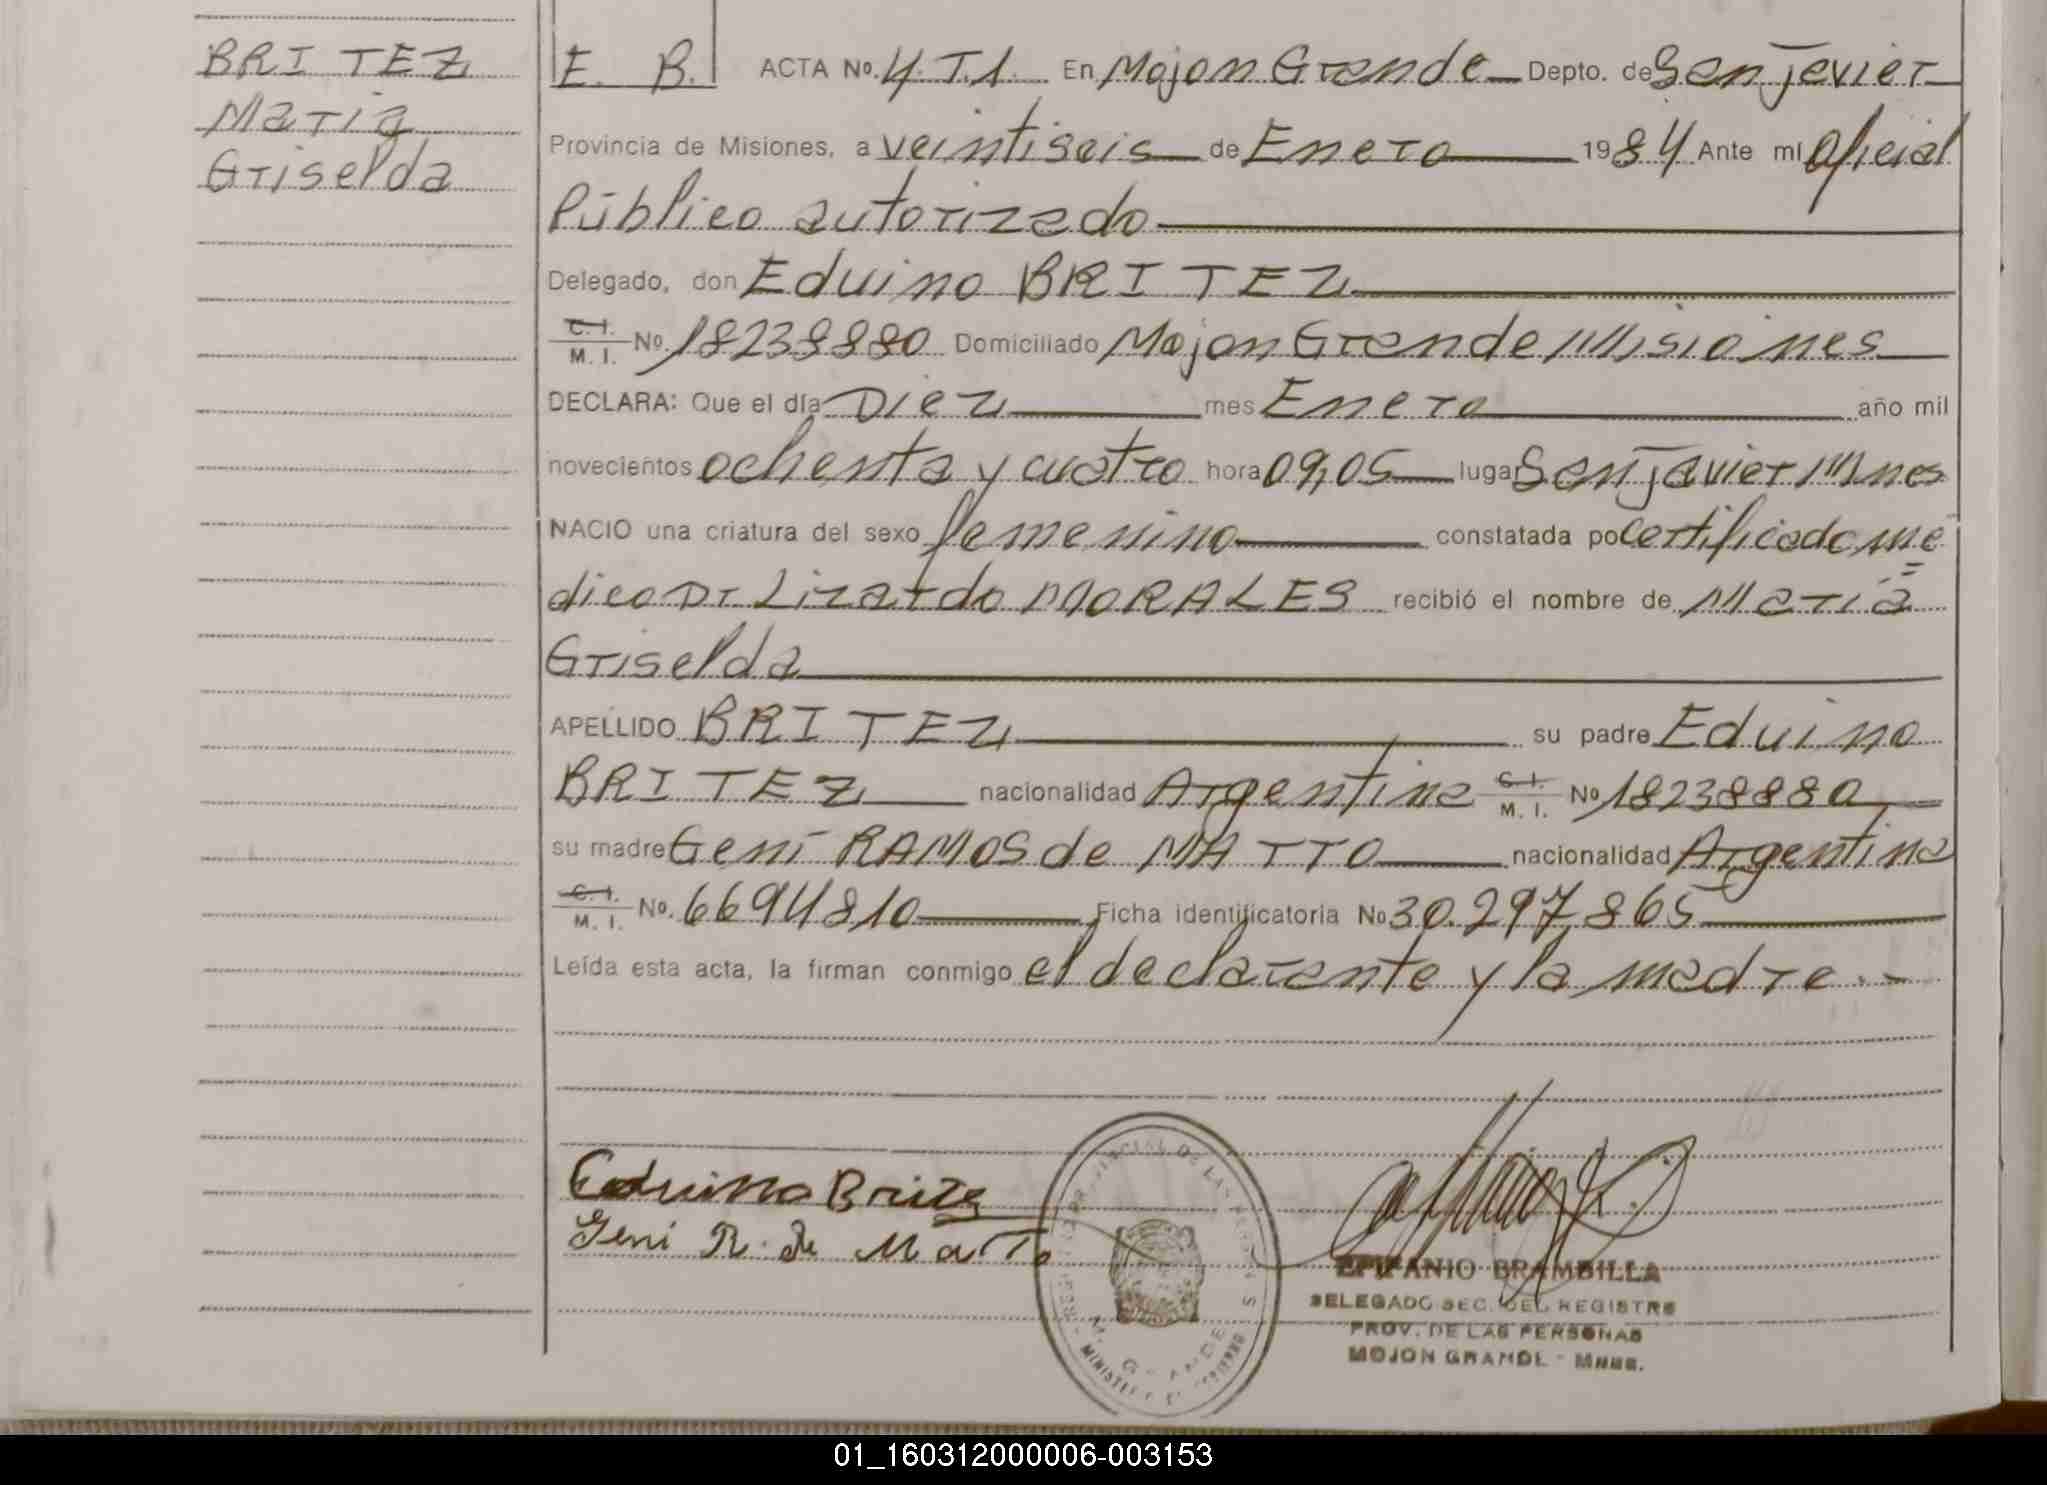 BRITEZ
Maria
Griselda
E. B. ACTA No. 4.T.1. En Mojon Grande Depto. de San Javier
Provincia de Misiones, a veintiseis de Enero 1984 Ante mi Oficial
Público autorizado
Delegado, don Eduino BRITEZ
C. I. / M. I. No. 18238880 Domiciliado Mojon Grande Misiones
DECLARA: Que el día Diez mes Enero año mil
novecientos ochenta y cuatro hora 09,05 lugar San Javier Mnes
NACIO una criatura del sexo femenino constatada po certificado me
dico Dr Lizardo MORALES recibió el nombre de María
Griselda
APELLIDO BRITEZ su padre Eduino
BRITEZ nacionalidad Argentina C. I. / M. I. No 18238880
su madre Geni RAMOS de MATTO nacionalidad Argentina
C. I. / M. I. No. 6694810 Ficha identificatoria No 30.297.865
Leída esta acta, la firman conmigo el declarante y la madre.-
Eduino Britez
Geni R. de Matto
M. GRANDE
EPIFANIO BRAMBILLA
DELEGADO SEC. DEL REGISTRO
PROV. DE LAS PERSONAS
MOJON GRANDE - Mnes.
01_160312000006-003153